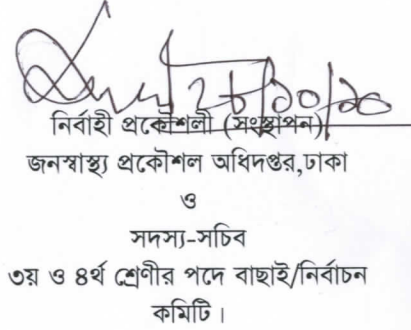 28/10/20
নির্বাহী প্রকৌশলী (সংস্থাপন)
জনস্বাস্থ্য প্রকৌশল অধিদপ্তর,ঢাকা
ও
সদস্য-সচিব
৩য় ও ৪র্থ শ্রেণীর পদে বাছাই/নির্বাচন
কমিটি।